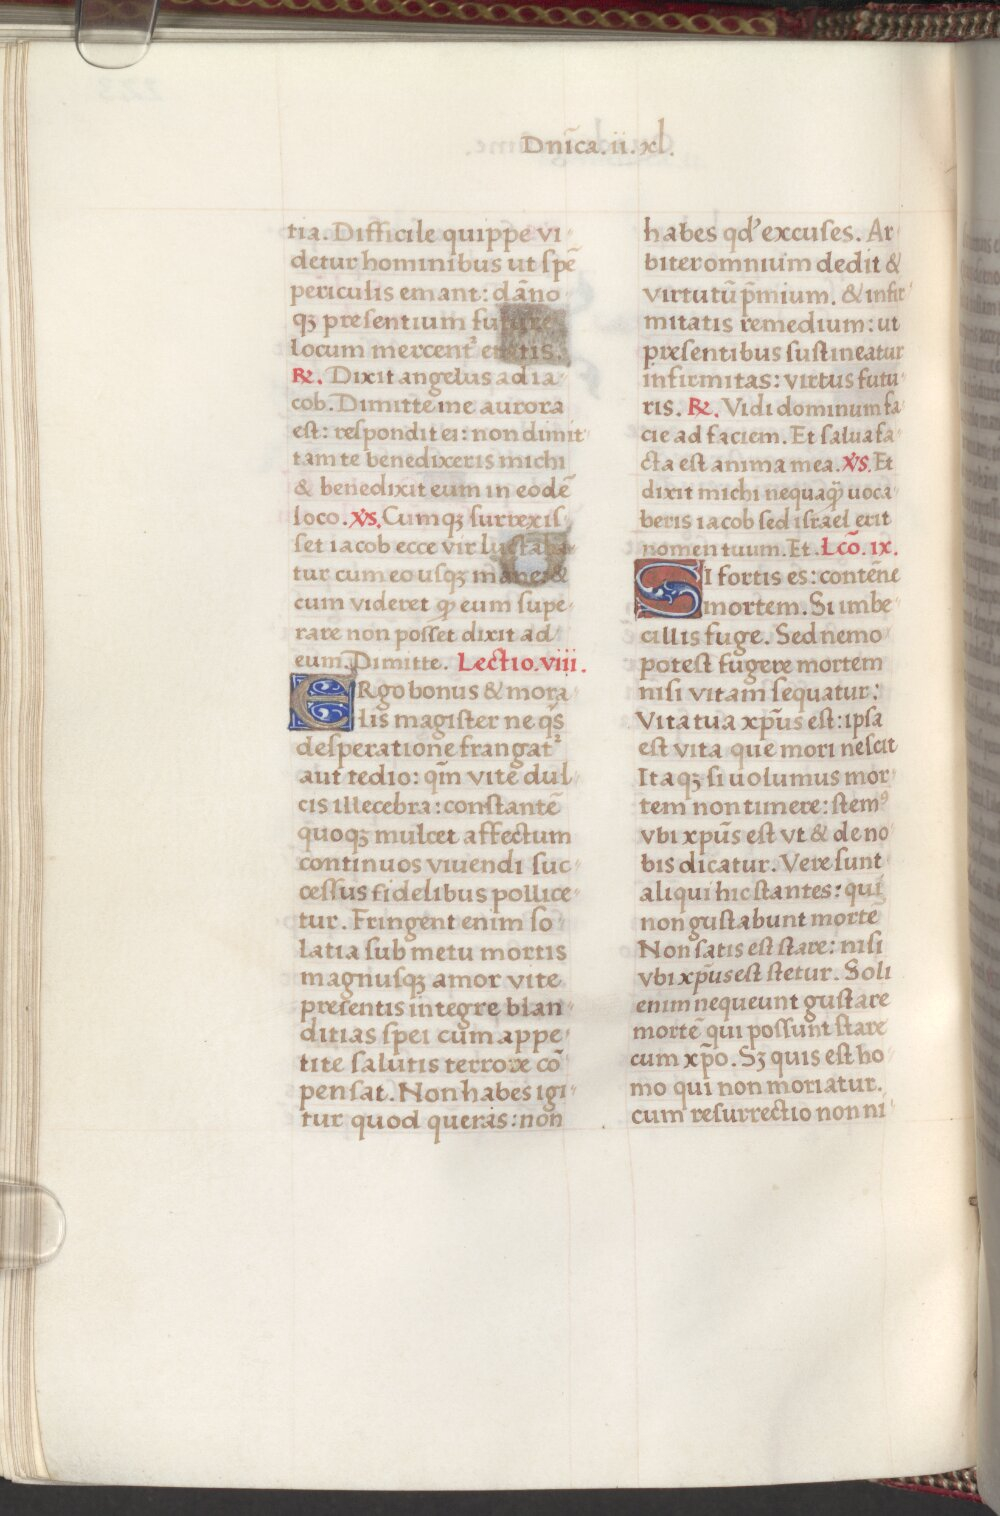 Dnĩca.ii.xl.
tia. Difficile quippe vi
detur hominibus ut spẽ
periculis emant: dãno
qꝫ presentium future
locum mercentᷣ etatis.
℟. Dixit angelus ad ia
cob. Dimitte me aurora
est: respondit ei: non dimit
tam te benedixeris michi
& benedixit eum in eodẽ
loco. ꝟs. Cumqꝫ surrexis
set iacob ecce vir luctaba
tur cum eo usqꝫ mane: &
cum videret ꝙ eum supe
rare non posset dixit ad
eum. Dimitte. Lectio.viii.
ERgo bonus & mora
lis magister ne qs̃
desperatione frangatᷣ
aut tedio: qm̃ vite dul
cis illecebra: constantẽ
quoqꝫ mulcet affectum
continuos vivendi suc
cessus fidelibus pollice
tur. Fringent enim so
latia sub metu mortis
magnusqꝫ amor vite
presentis integre blan
ditias spei cum appe
tite salutis terrore cõ
pensat. Non habes igi
tur quod queras: non
habes qd' excuses. Ar
biter omnium dedit &
virtutũ p̃mium. & infir
mitatis remedium: ut
presentibus sustineatur
infirmitas: virtus futu
ris. ℟. Vidi dominum fa
cie ad faciem. Et salua fa
cta est anima mea. ꝟs. Et
dixit michi nequaq̃ uoca
beris iacob sed israel erit
nomen tuum. Et. Lcõ. ix.
SI fortis es: contẽne
mortem. Si imbe
cillis fuge. Sed nemo
potest fugere mortem
nisi vitam sequatur:
Vita tua xpũs est: ipsa
est vita que mori nescit
Itaqꝫ si uolumus mor
tem non timere: stemꝰ
vbi xpũs est vt & de no
bis dicatur. Vere sunt
aliqui hic stantes: qui
non gustabunt mortẽ
Non satis est stare: nisi
vbi xpũs est stetur. Soli
enim nequeunt gustare
mortẽ qui possunt stare
cum xp̃o. Sꝫ quis est ho
mo qui non moriatur.
cum resurrectio non ni